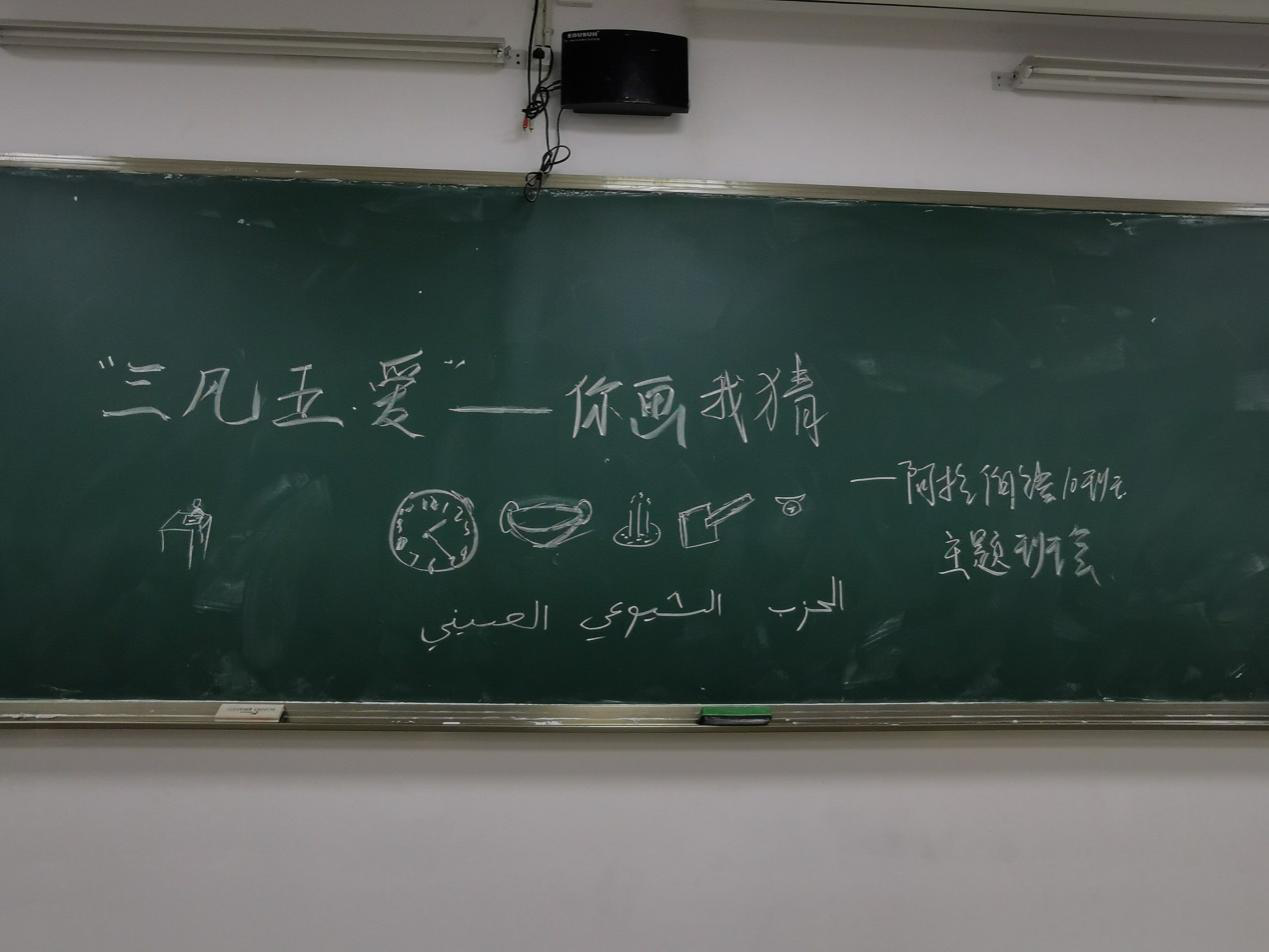 EDUSUN
“三凡五爱”——你画我猜
—阿拉伯语
主题班会
12 1 2 3
الحزب الشيوعي الصيني